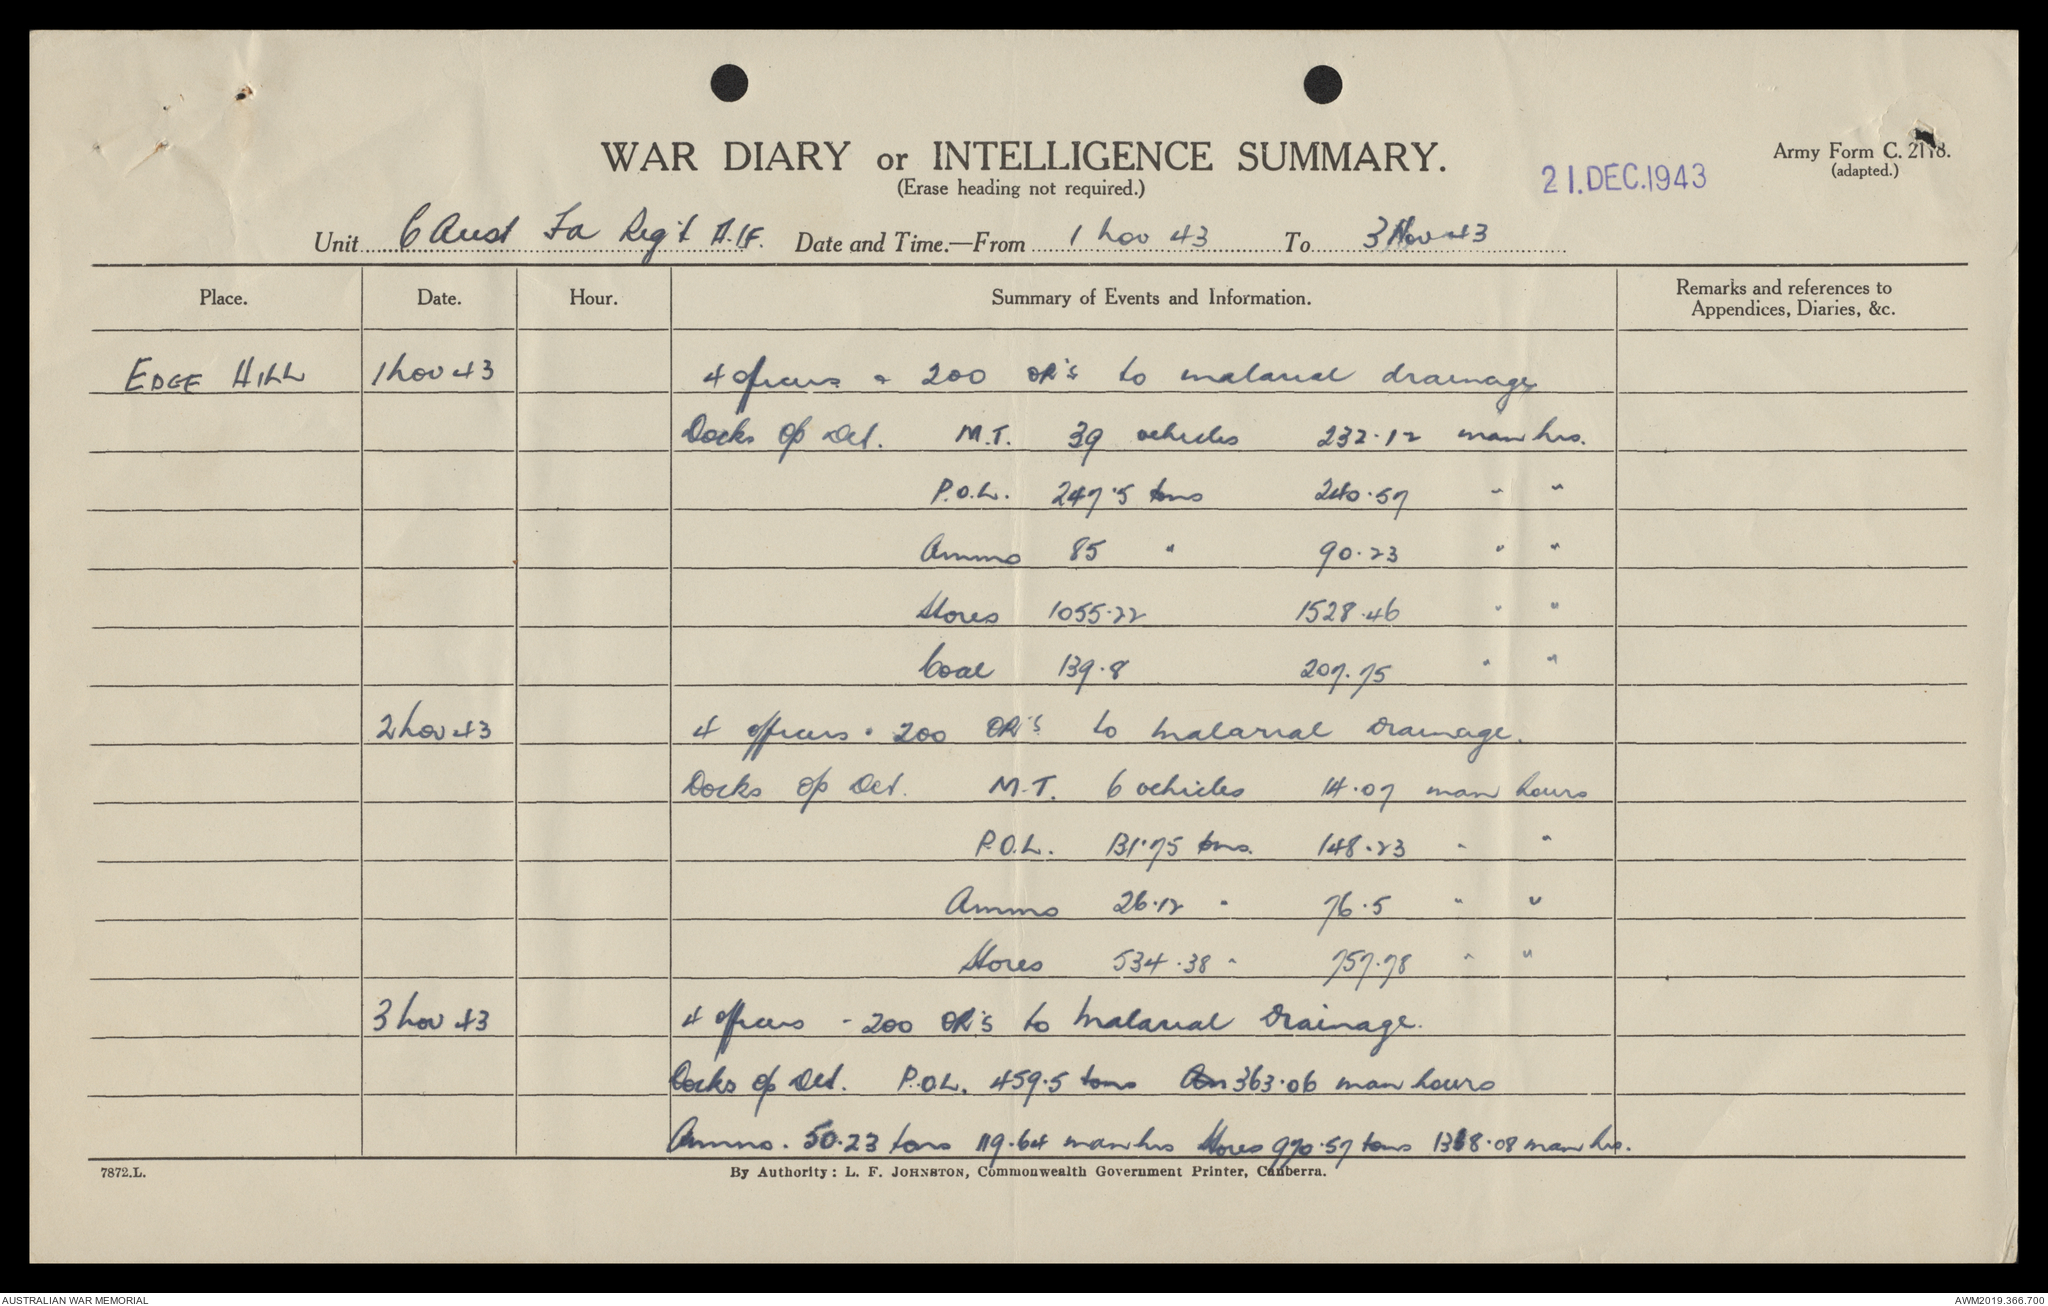 WAR DIARY or INTELLIGENCE SUMMARY.
(Erase heading not required.)
21.DEC.1943
Army Form C. 2118.
(adapted.)
Unit 6 Aust Fa Reg't A.I.F. Date and Time.—From 1 Nov 43 To 3 Nov 43
Place. Date. Hour. Summary of Events and Information. Remarks and references to Appendices, Diaries, &c.
EDGE HILL 1 Nov 43 4 officers & 200 OR's to malarial drainage
Docks Op Det. M.T. 39 vehicles 232.12 man hrs.
P.O.L. 247.5 tons 240.57 " "
Ammo 85 " 90.23 " "
Stores 1055.22 1528.46 " "
Coal 139.8 207.75 " "
2 Nov 43 4 officers & 200 OR's to Malarial Drainage.
Docks Op Det. M.T. 6 vehicles 14.07 man hours
P.O.L. 131.75 tons. 148.23 " "
Ammo 26.12 " 76.5 " "
Stores 534.38 " 757.78 " "
3 Nov 43 4 officers - 200 OR's to Malarial Drainage.
Docks Op Det. P.O.L. 459.5 tons 363.06 man hours
Ammo. 50.23 tons 119.64 man hrs Stores 970.57 tons 1368.08 man hrs.
7872.L. By Authority: L. F. JOHNSTON, Commonwealth Government Printer, Canberra.
AUSTRALIAN WAR MEMORIAL AWM2019.366.700